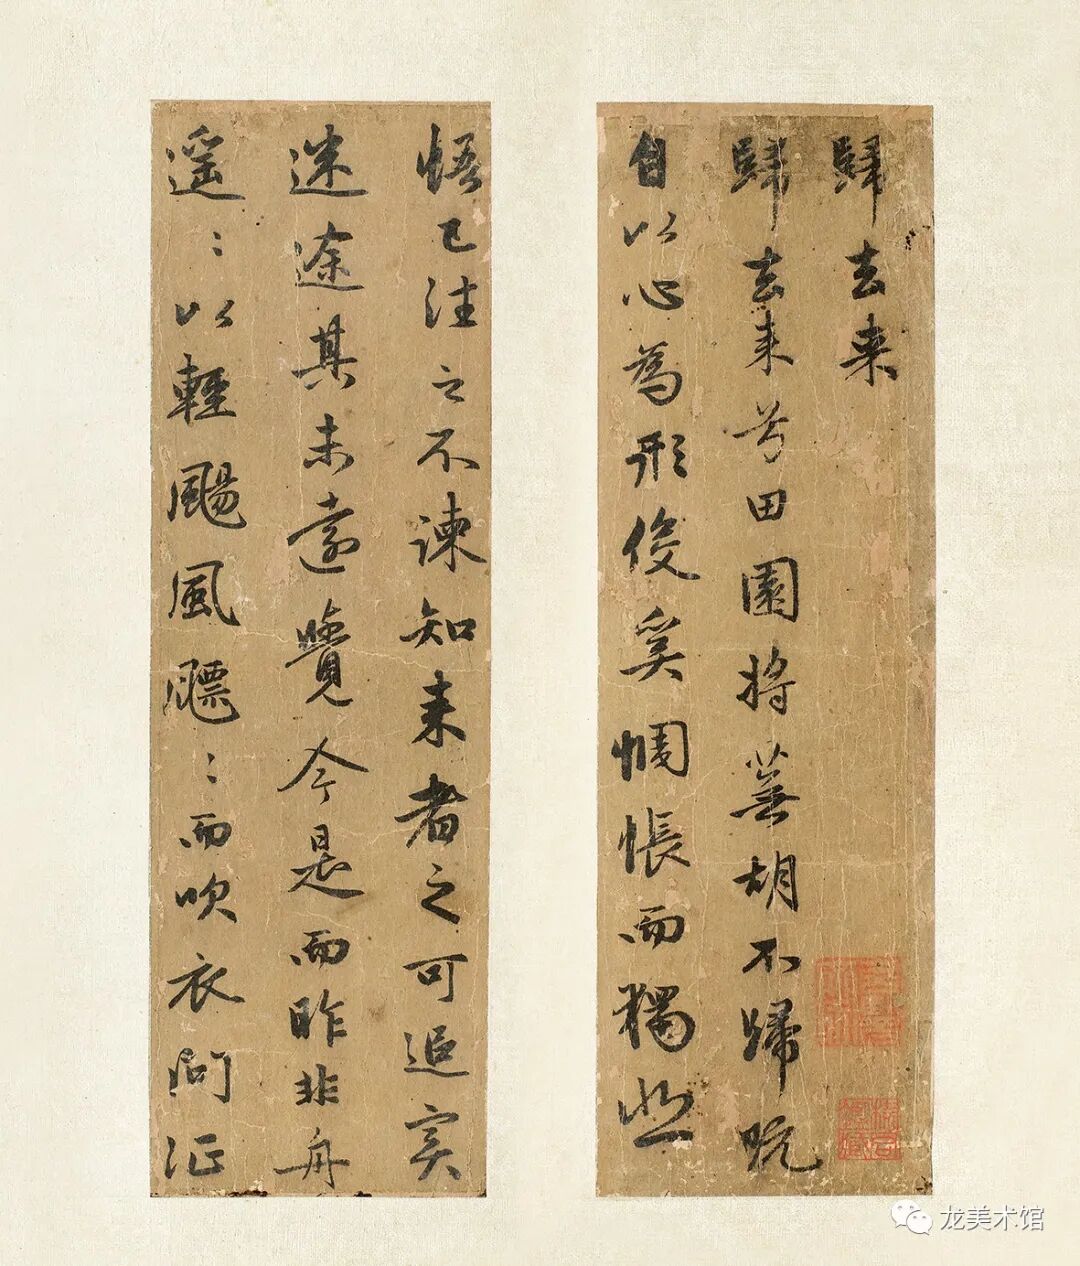 歸去来
歸去来兮田園将蕪胡不歸既
自以心為形伇奚惆悵而獨悲
悟已往之不諫知来者之可追實
迷途其未遠覺今是而昨非舟
遥〻以輕颺風飄〻而吹衣問征
龙美术馆